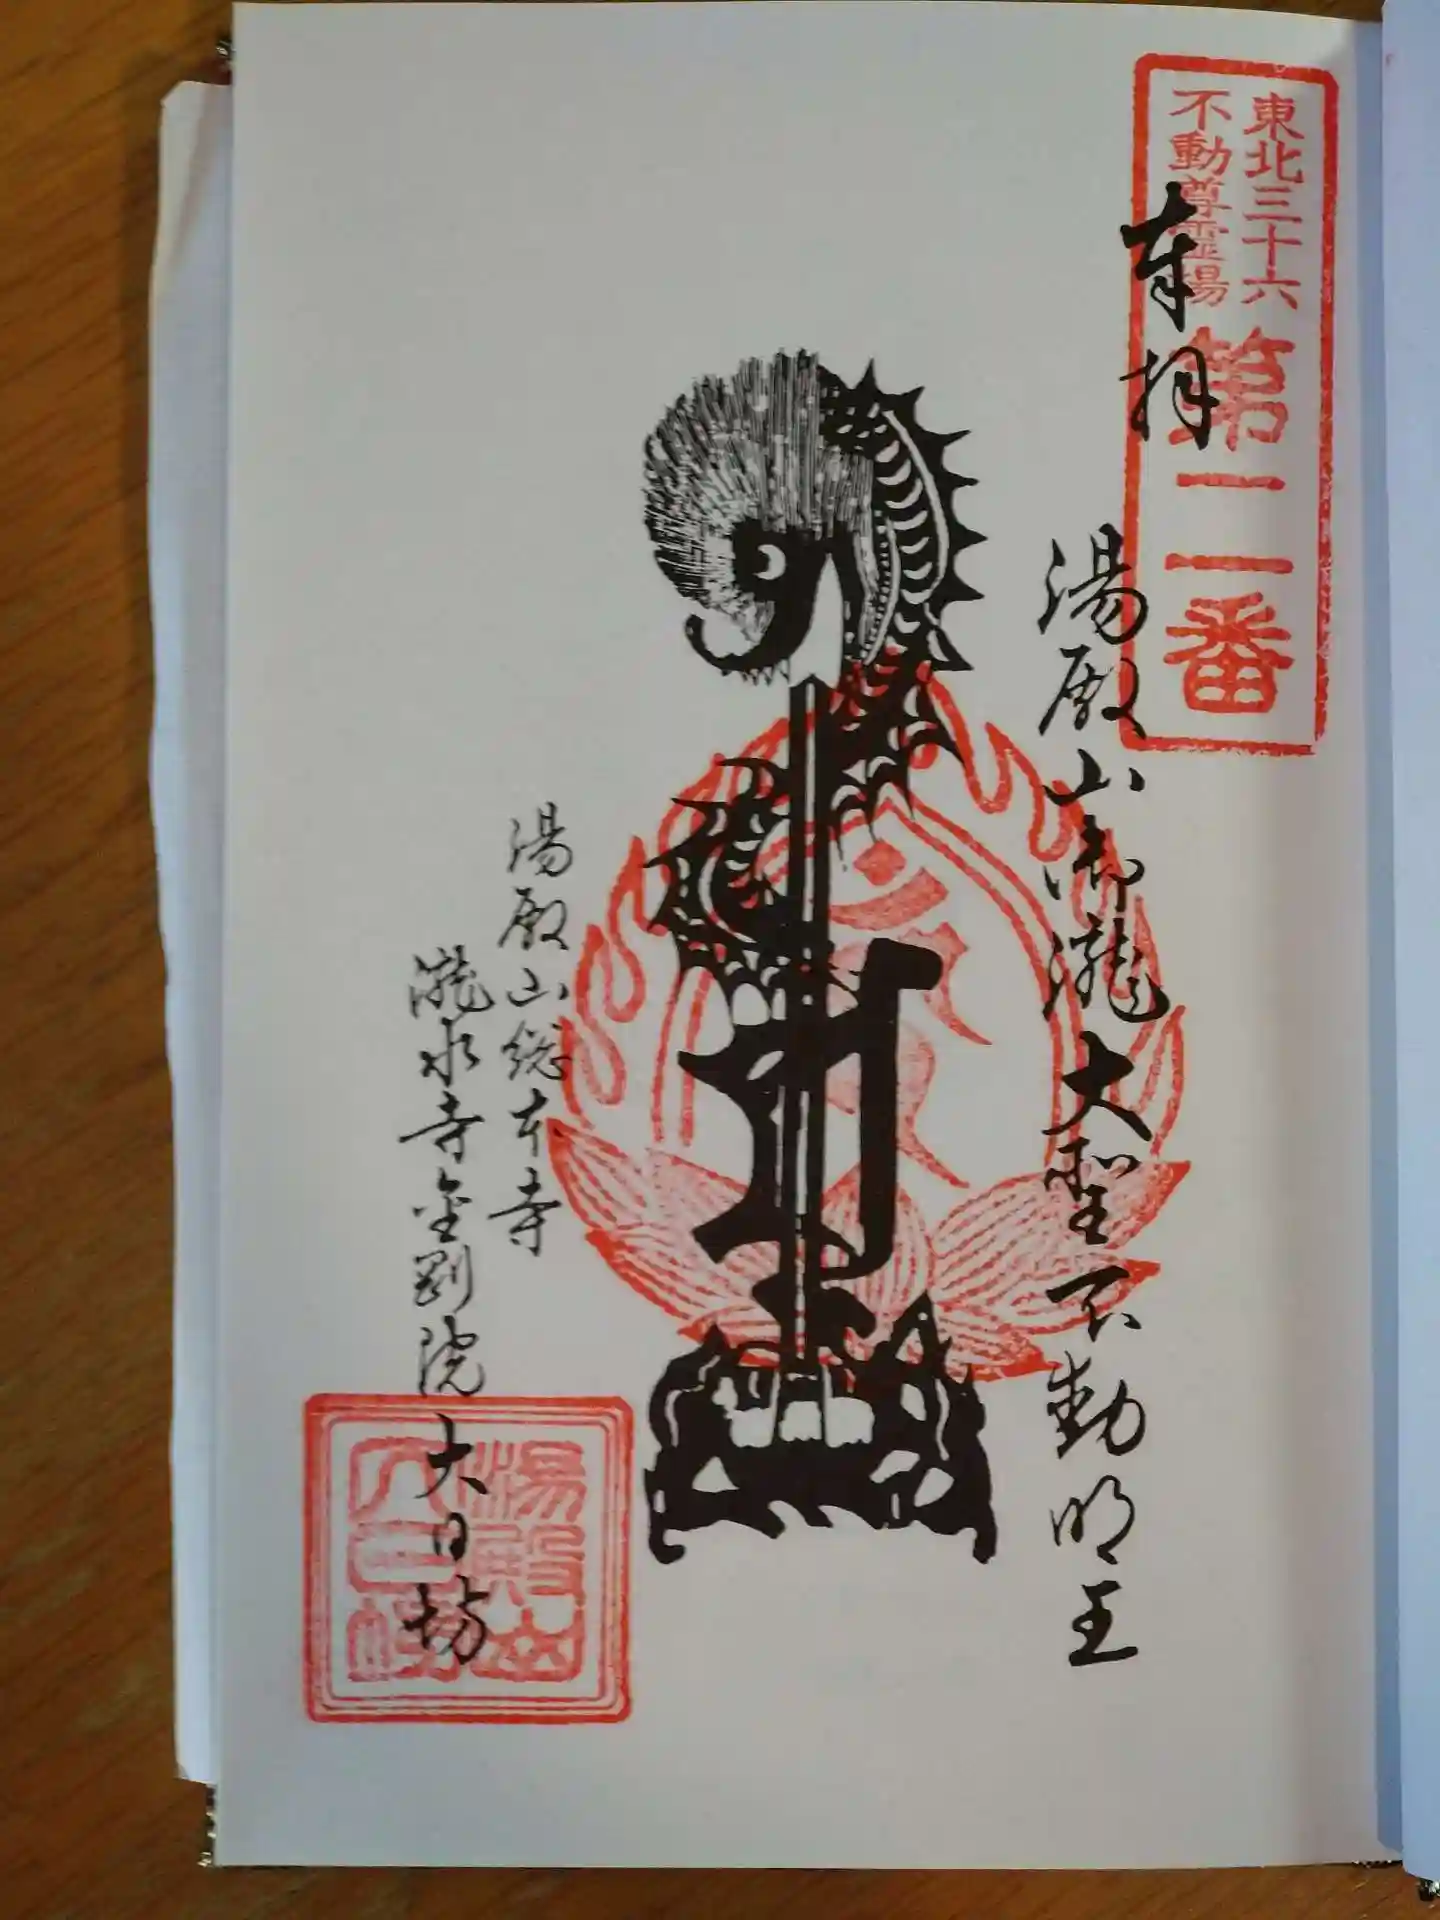 東北三十六
不動尊霊場
第二番
奉拝
湯殿山御瀧大聖不動明王
湯殿山総本寺
瀧水寺金剛院大日坊
湯殿山
大日坊